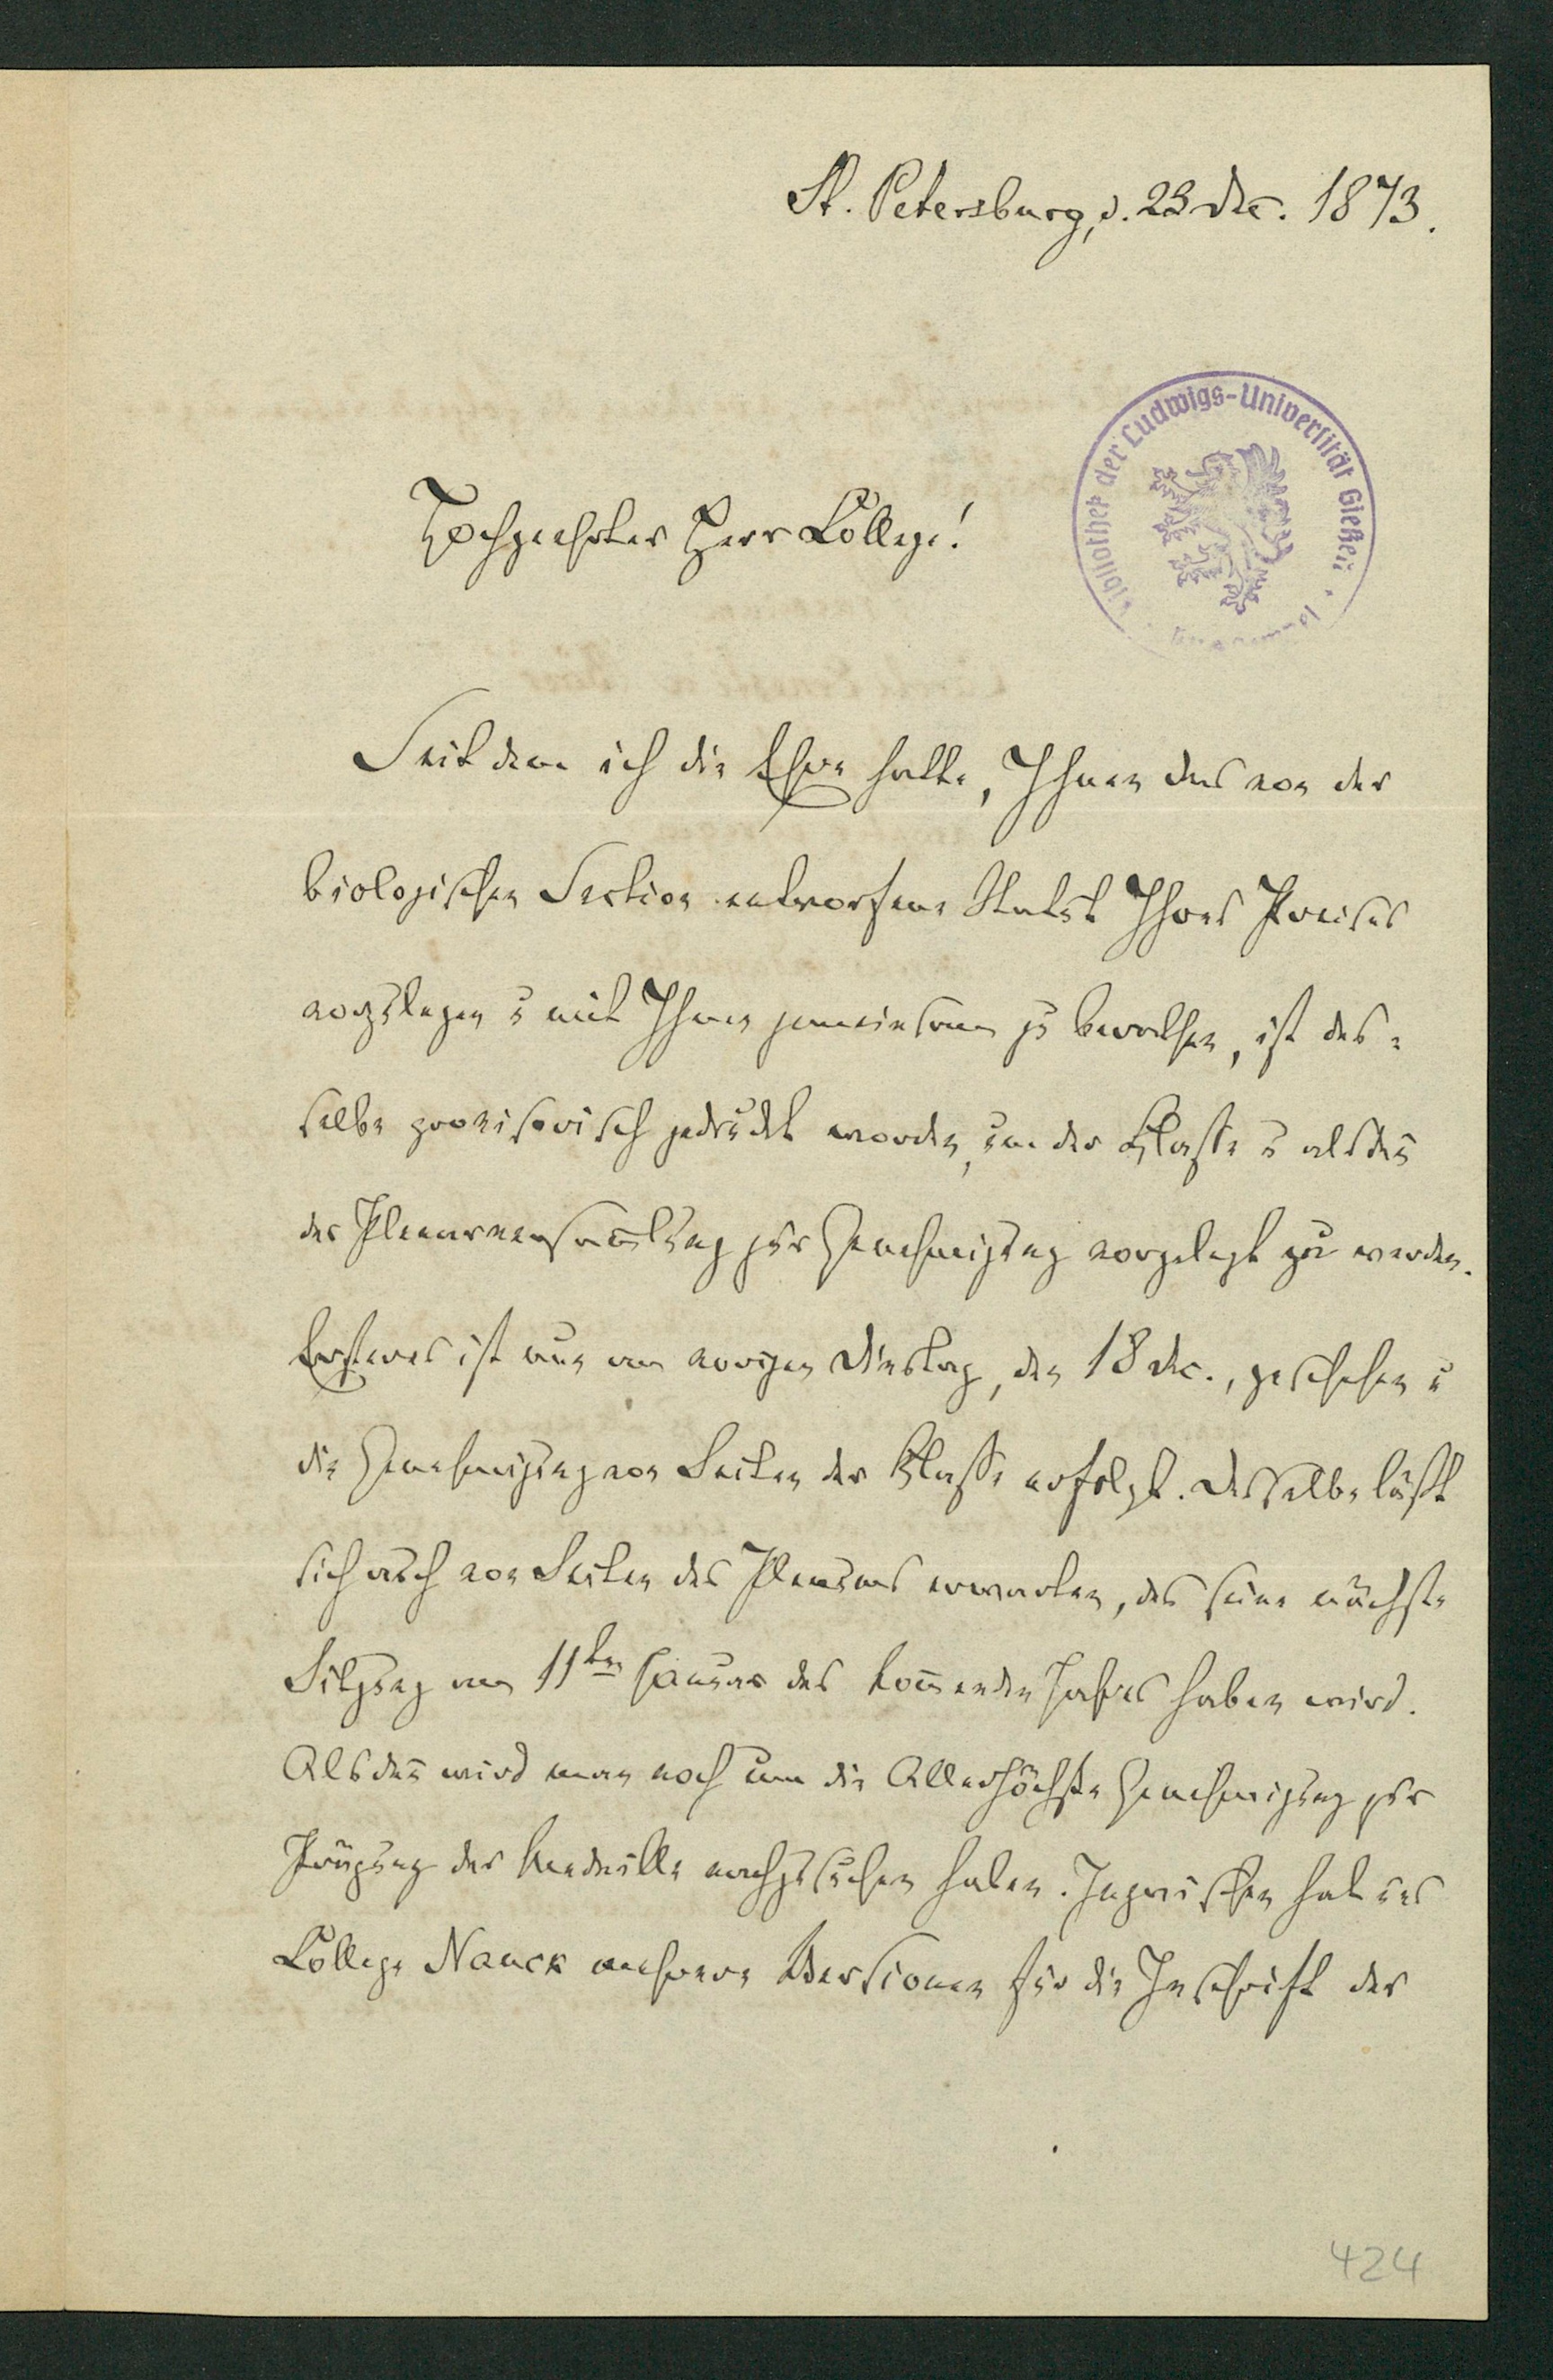 St. Petersburg, d. 23 Dec. 1873.
Bibliothek der Ludwigs-Universität Gießen
Hochgeehrter Herr College!
Seit dem ich die Ehre hatte, Ihnen das von der
biologischen Section entworfene Statut Ihres Preises
vorzulegen u mit Ihnen gemeinsam zu berathen, ist das-
selbe provisorisch gedruckt worden, um der Klasse u alsdañ
der Plenarversam̄lung zur Genehmigung vorgelegt zu werden.
Ersteres ist nun am vorigen Dinstag, den 18 Dec., geschehen u
die Genehmigung von Seiten der Klasse erfolgt. Dasselbe läßt
sich auch von Seiten des Plenums erwarten, das seine nächste
Sitzung am 11ten Januar des kom̄enden Jahres haben wird.
Alsdañ wird man noch um die Allerhöchste Genehmigung zur
Prägung der Medaille nachzusuchen haben. Inzwischen hat uns
College Nauck mehrere Versionen für die Inschrift der
424